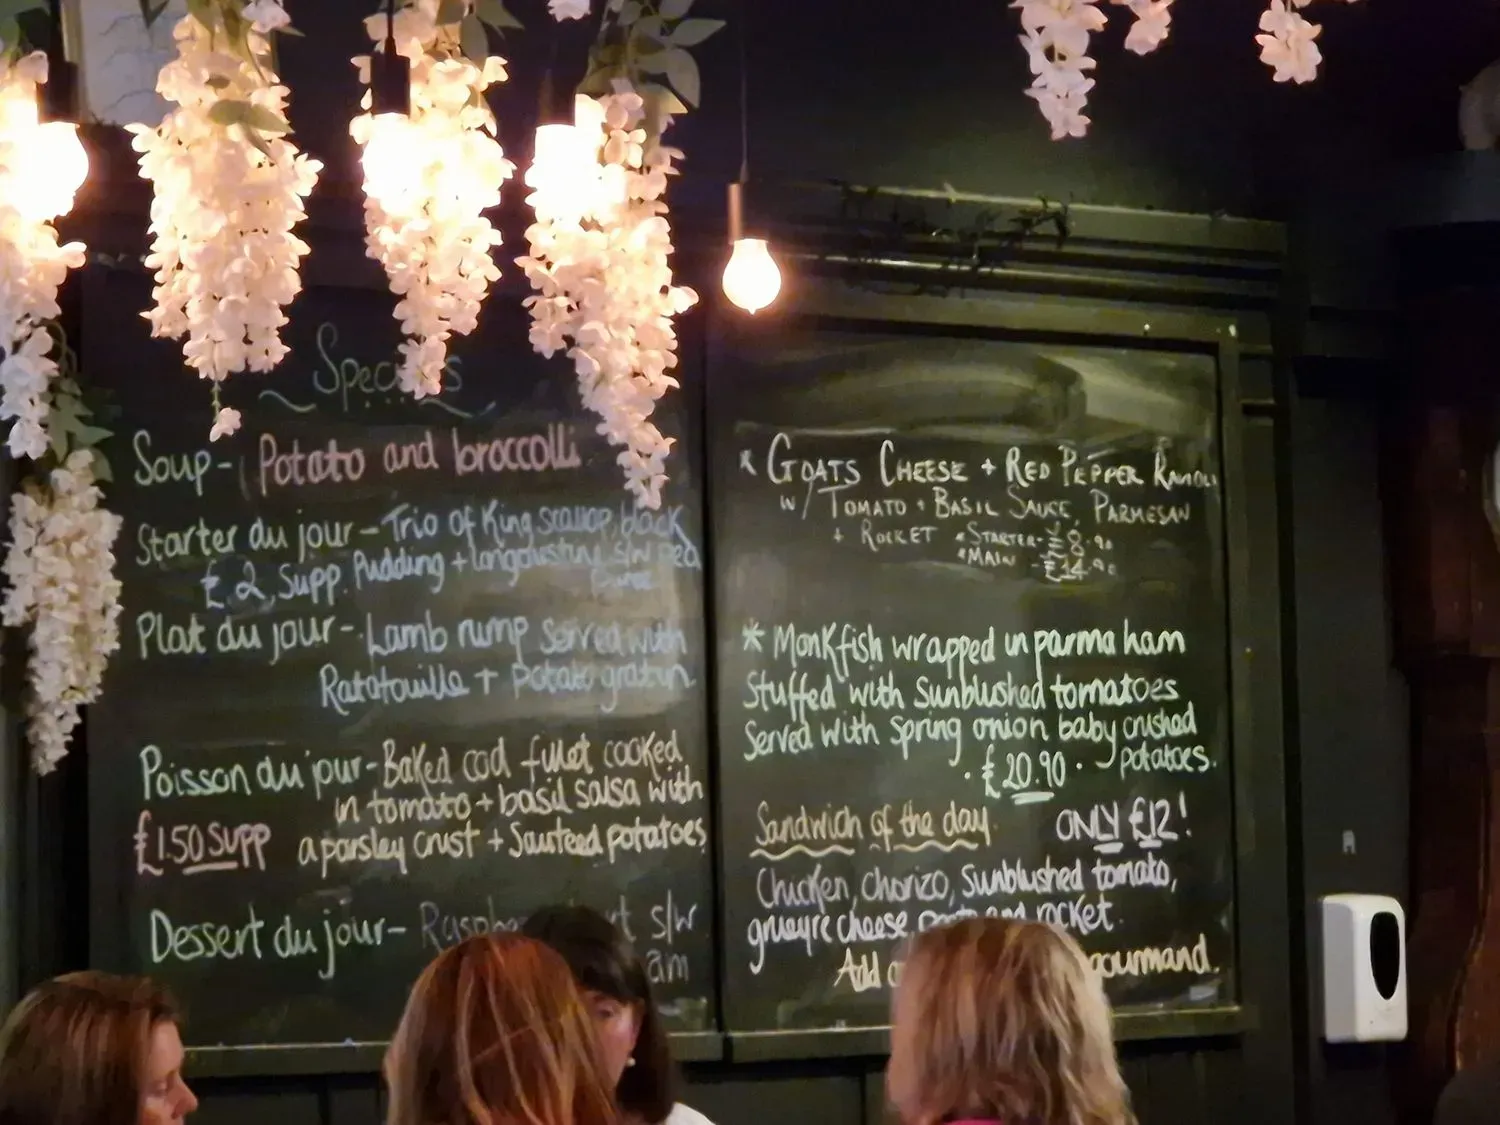 Specials
Soup - Potato and broccolli
Starter du jour - Trio of King scallop, black
£2, Supp. Pudding + langoustine s/w pea
Plat du jour - Lamb rump served with
Ratatouille + potato gratin.
Poisson du jour - Baked cod fillet cooked
in tomato + basil salsa with
£1.50 SUPP a parsley crust + Sauteed potatoes.
Dessert du jour - s/w
* GOATS CHEESE + RED PEPPER RAVIOLI
w/ TOMATO + BASIL SAUCE, PARMESAN
+ ROCKET *STARTER - £8.90
*MAIN - £14.90
* Monkfish wrapped in parma ham
Stuffed with Sunblushed tomatoes
Served with Spring onion baby crushed
. £20.90 . potatoes.
Sandwich of the day ONLY £12!
Chicken, Chorizo, Sunblushed tomato,
grueyre cheese, rocket.
Add gourmand.